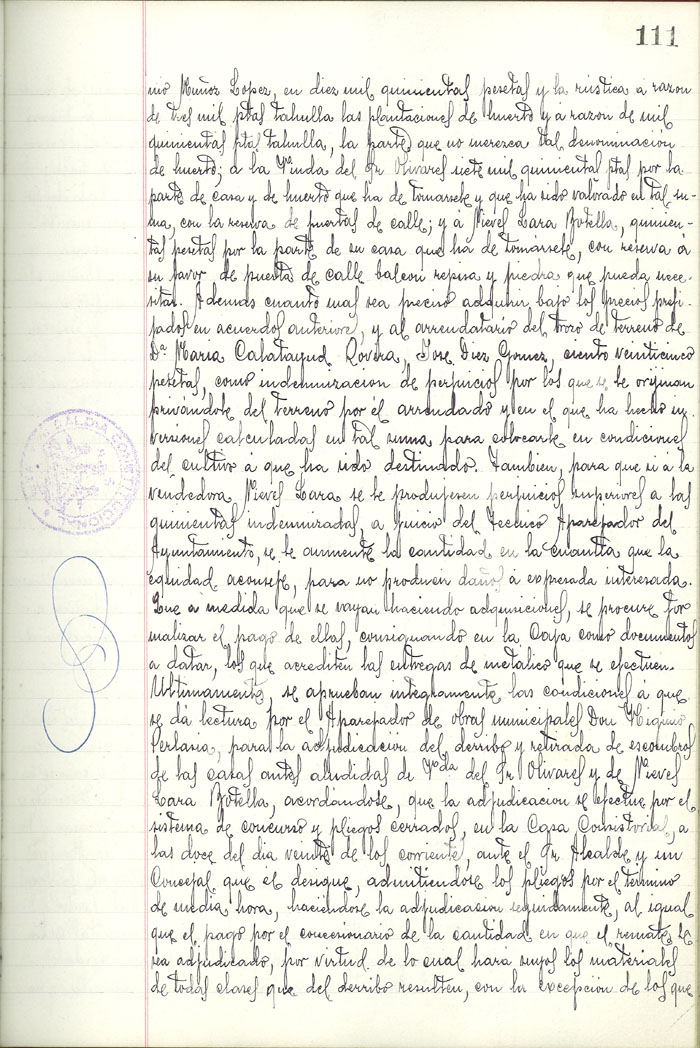 111
nio Muñoz Lopez, en diez mil quinientas pesetas y la rustica a razon
de tres mil ptas tahulla las plantaciones de huerto y á razon de mil
quinientas ptas tahulla, la parte que no merezca tal denominacion
de huerto; a la Vᵈᵃ del Sr Olivares siete mil quinientas ptas por la
parte de casa y de huerto que ha de tomarsele y que ha sido valorado en tal su-
ma, con la reserva de puertas de calle; y á Nieves Lara Botella, quinien-
tas pesetas por la parte de su casa que ha de tomársele, con reserva á
su favor de puerta de calle balcon repisa y piedra que pueda nece-
sitar. Ademas cuanto mas sea preciso adquirir bajo los precios prefi-
jados en acuerdos anteriores, y al arrendatario del trozo de terreno de
Dª Maria Calatayud Rovira, Jose Diez Gomez, ciento veinticinco
pesetas, como indemnizacion de perjuicios por los que se le orijinan
privandole del terreno por él arrendado y en el que ha hecho in-
versiones calculadas en tal suma para colocarle en condiciones
del cultivo á que ha sido destinado. Tambien, para que si á la
vendedora, Nieves Lara se le produjesen perjuicios superiores a las
quinientas indemnizadas, a juicio del Tecnico Aparejador del
Ayuntamiento, se le aumente la cantidad en la cuantia que la
equidad aconseje, para no producir daños á expresada interesada.
Que a medida que se vayan haciendo adquisiciones, se procure for
malizar el pago de ellas, consignando en la Caja como documentos
a datar, los que acrediten las entregas de metalico que se efectuen.
Ultimamente, se aprueban integramente las condiciones á que
se dá lectura por el Aparejador de obras municipales Don Higinio
Perlasia, para la adjudicacion del derribo y retirada de escombros
de las casas antes aludidas de Vᵈᵃ del Sr Olivares y de Nieves
Lara Botella, acordándose, que la adjudicacion se efectue por el
sistema de concurso y pliegos cerrados, en la Casa Consistorial, a
las doce del dia veinte de los corrientes, ante el Sr Alcalde y un
Concejal que el designe, admitiendose los pliegos por el término
de media hora, haciendose la adjudicacion seguidamente, al igual
que el pago por el concesionario de la cantidad en que el remate le
sea adjudicado, por virtud de lo cual hará suyos los materiales
de todas clases que del derribo resulten, con la excepción de los que
ALCALDIA CONSTITUCIONAL